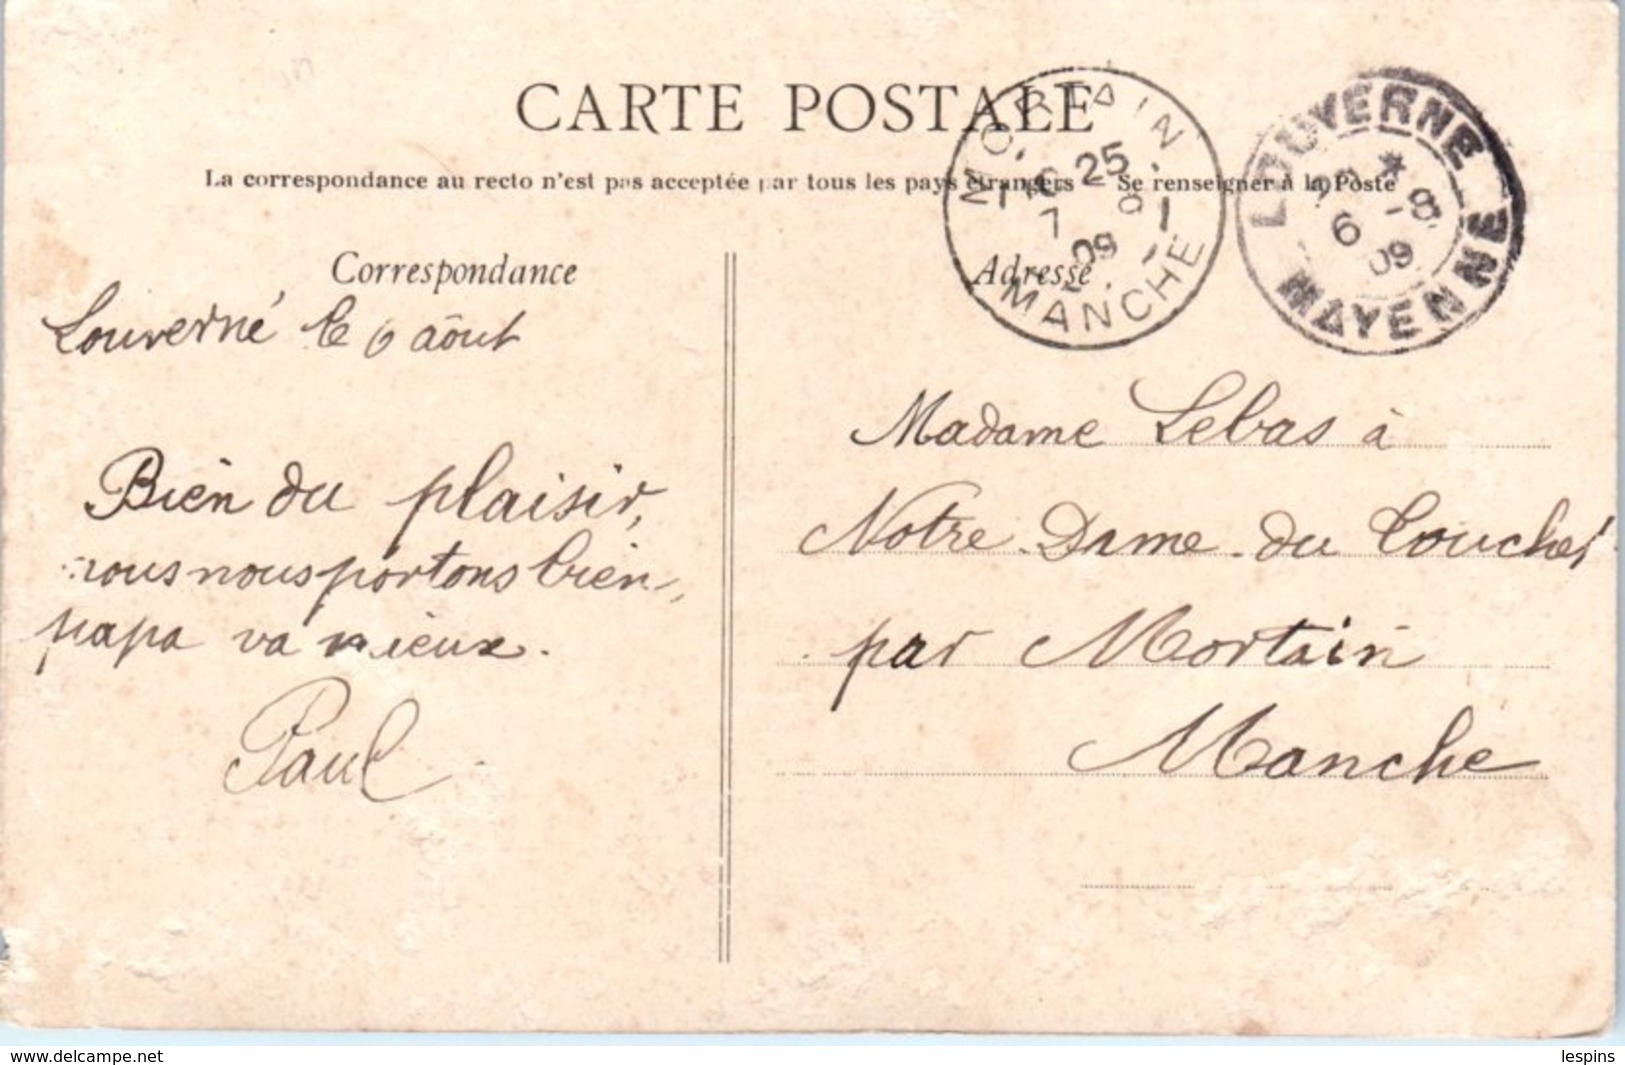 CARTE POSTALE
La correspondance au recto n'est pas acceptée par tous les pays étrangers - Se renseigner à la Poste
MORTAIN
16 25
7 8
09
MANCHE
LOUVERNE
* 6 -8
09
MAYENNE
Correspondance
Adresse
Louverné le 6 aôut
Bien du plaisir,
nous nous portons bien,
papa va mieux.
Paul
Madame Lebas à
Notre-Dame-du Touchet
par Mortain
Manche
www.delcampe.net
lespins